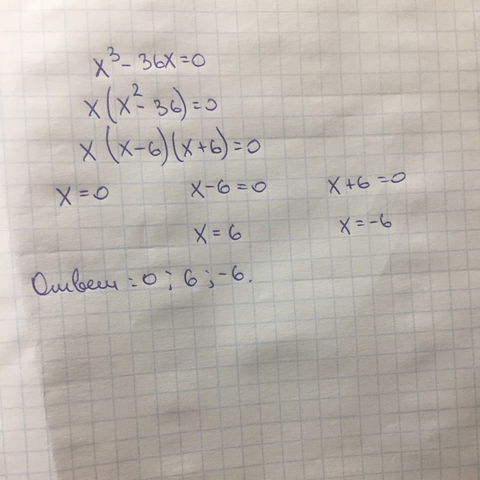 x³ - 36x = 0
x(x² - 36) = 0
x(x-6)(x+6) = 0
x = 0 x-6 = 0 x+6 = 0
x = 6 x = -6
Ответ: 0; 6; -6.